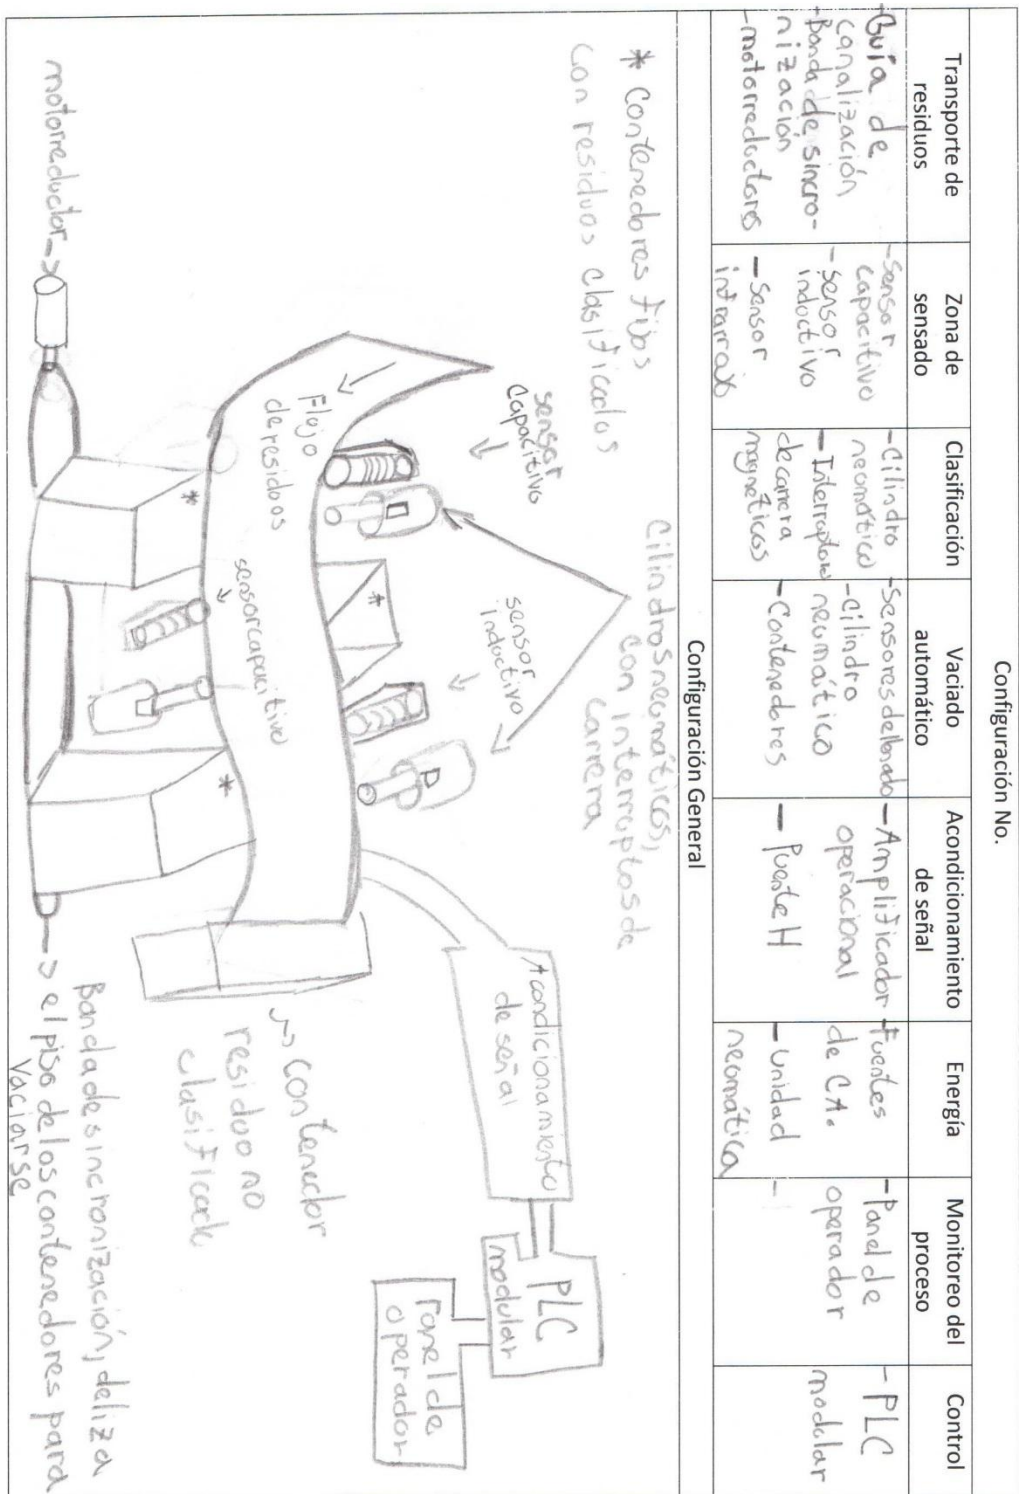 Configuración No.
Transporte de
residuos
Zona de
sensado
Clasificación
Vaciado
automático
Acondicionamiento
de señal
Energía
Monitoreo del
proceso
Control
-Guía de
canalización
-Banda de sincro-
nización
-motorreductores
-Sensor
capacitivo
-Sensor
inductivo
-Sensor
infrarrojo
-Cilindro
neomático
-Interruptores
de carrera
magnéticos
-Sensores de llenado
-Cilindro
neumático
-Contenedores
-Amplificador
operacional
-Puente H
-Fuentes
de CA.
-Unidad
neomática
-Panel de
operador
-
-PLC
modular
Configuración General
* Contenedores fijos
con residuos clasificados
sensor
capacitivo
Cilindros neumáticos,
con interruptos de
carrera
sensor
inductivo
Flujo
de residuos
sensor capacitivo
*
*
*
Acondicionamiento
de señal
PLC
modular
Panel de
operador
contenedor
residuo no
clasificado
motorreductor
Banda de sincronización, deliza
el piso de los contenedores para
vaciarse